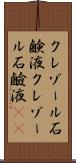 クレゾール石
鹸液クレゾー
ル石鹸液